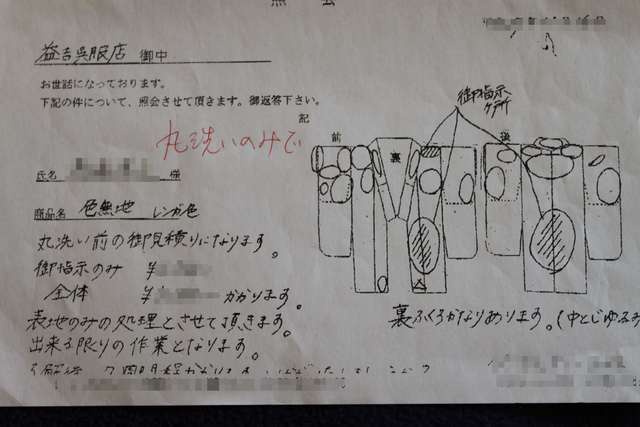 照会
益吉呉服店 御中
お世話になっております。
下記の件について、照会させて頂きます。御返答下さい。
記
丸洗いのみで
氏名 様
商品名 色無地 レンガ色
丸洗い前の御見積りになります。
御指示のみ ¥
全体 ¥ かかります。
表地のみの処理とさせて頂きます。
出来る限りの作業となります。
御指示ヶ所
前
裏
後
裏ふくろかなりあります。(中とじゆるみ